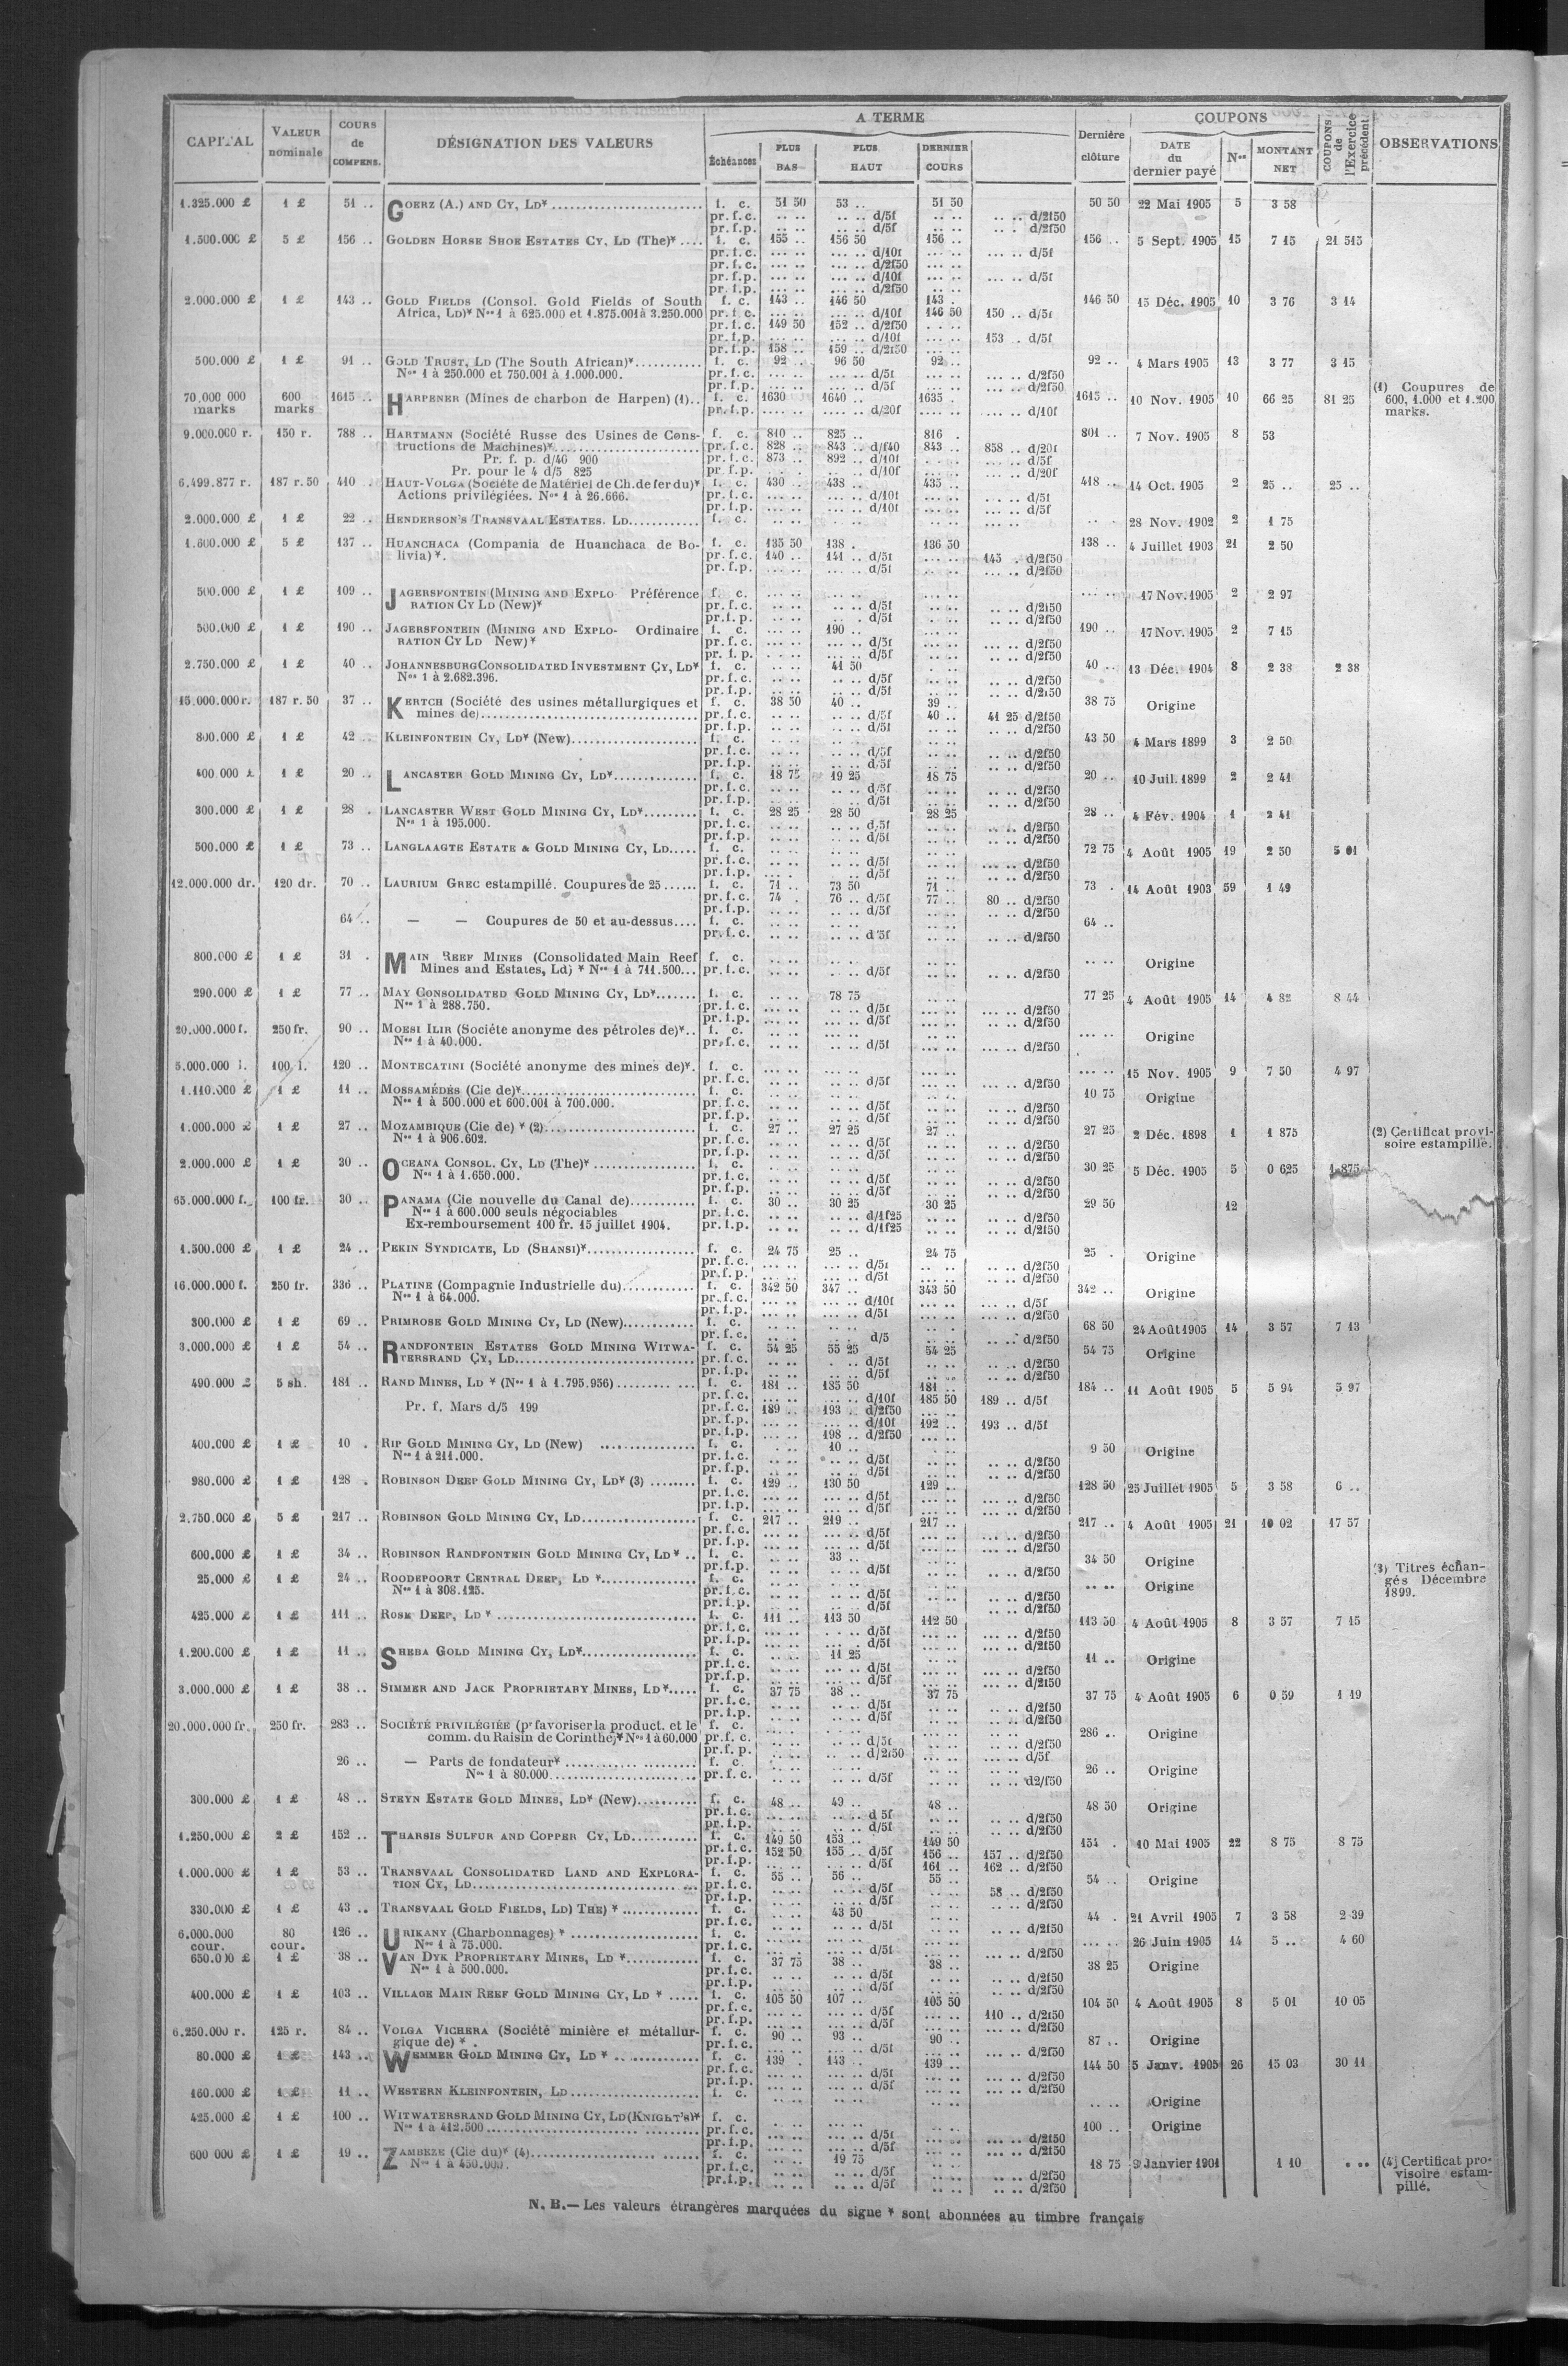 CAPITAL VALEUR nominale COURS de COMPENS. DÉSIGNATION DES VALEURS A TERME Échéances PLUS BAS PLUS HAUT DERNIER COURS Dernière clôture COUPONS DATE du dernier payé Nos MONTANT NET COUPONS de l'Exercice précédent OBSERVATIONS
1.325.000 £ 1 £ 51 .. GOERZ (A.) AND CY, LD* f. c. 51 50 53 .. 51 50 50 50 22 Mai 1905 5 3 58
pr. f. c. .. .. .. .. d/5f .. .. .. .. d/2f50
pr. f. p. .. .. .. .. d/5f .. .. .. . d/2f50
1.500.000 £ 5 £ 156 .. GOLDEN HORSE SHOE ESTATES CY, LD (The)* f. c. 155 .. 156 50 156 .. 156 .. 5 Sept. 1905 15 7 15 21 515
pr. f. c. ... .. ... .. d/10f ... .. ... .. d/5f
pr. f. c. ... .. ... .. d/2f50 ... ..
pr. f. p. ... .. ... .. d/10f ... .. ... .. d/5f
pr. f. p. ... .. ... .. d/2f50 ... ..
2.000.000 £ 1 £ 143 .. GOLD FIELDS (Consol. Gold Fields of South f. c. 143 .. 146 50 143 . 146 50 15 Déc. 1905 10 3 76 3 14
Africa, LD)* Nos 1 à 625.000 et 1.875.001 à 3.250.000 pr. f. c. ... .. ... .. d/10f 146 50 150 .. d/5f
pr. f. c. 149 50 152 .. d/2f50
pr. f. p. ... .. ... .. d/10f ... .. 153 . d/5f
pr. f. p. 158 .. 159 .. d/2f50
500.000 £ 1 £ 91 .. GOLD TRUST, LD (The South African)* f. c. 92 .. 96 50 92 .. 92 .. 4 Mars 1905 13 3 77 3 15
Nos 1 à 250.000 et 750.001 à 1.000.000. pr. f. c. ... .. ... .. d/5f ... .. ... .. d/2f50
pr. f. p. ... .. ... .. d/5f ... .. ... .. d/2f50
70.000 000 marks 600 marks 1615 .. HARPENER (Mines de charbon de Harpen) (1).. f. c. 1630 1640 .. 1635 . 1615 .. 10 Nov. 1905 10 66 25 81 25 (1) Coupures de 600, 1.000 et 1.200 marks.
pr. f. p. .... .. .... .. d/20f .... .. .... .. d/10f
9.000.000 r. 150 r. 788 .. HARTMANN (Société Russe des Usines de Cons- f. c. 810 .. 825 .. 816 . 801 .. 7 Nov. 1905 8 53
tructions de Machines)* pr. f. c. 828 .. 843 .. d/f40 843 .. 858 .. d/20f
Pr. f. p. d/40 900 pr. f. c. 873 .. 892 .. d/10f ... .. d/5f
Pr. pour le 4 d/5 825 pr. f. p. d/10f ... .. d/20f
6.499.877 r. 187 r. 50 410 . HAUT-VOLGA (Société de Matériel de Ch. de fer du)* f. c. 430 .. 438 .. 435 .. 418 .. 14 Oct. 1905 2 25 .. 25 ..
Actions privilégiées. Nos 1 à 26.666. pr. f. c. ... .. ... .. d/10f ... .. ... .. d/5f
pr. f. p. ... .. ... .. d/10f ... .. ... .. d/5f
2.000.000 £ 1 £ 22 .. HENDERSON'S TRANSVAAL ESTATES. LD f. c. .. .. .. .. .. .. .. .. 28 Nov. 1902 2 1 75
1.600.000 £ 5 £ 137 .. HUANCHACA (Compania de Huanchaca de Bo- f. c. 135 50 138 . 136 50 138 .. 4 Juillet 1903 21 2 50
livia)*. pr. f. c. 140 .. 141 .. d/5f ... .. 145 . d/2f50
pr. f. p. ... .. ... .. d/5f ... .. ... .. d/2f50
500.000 £ 1 £ 109 .. JAGERSFONTEIN (MINING AND EXPLO- Préférence f. c. ... .. ... .. ... .. ... .. 17 Nov. 1905 2 2 97
RATION CY LD (New)* pr. f. c. .. .. .. .. d/5f .. .. .. .. d/2f50
pr. f. p. .. .. .. . d/5f .. .. .. .. d/2f50
500.000 £ 1 £ 190 .. JAGERSFONTEIN (MINING AND EXPLO- Ordinaire f. c. ... .. 190 .. ... .. 190 .. 17 Nov. 1905 2 7 15
RATION CY LD New)* pr. f. c. ... .. ... .. d/5f ... .. .. .. d/2f50
pr. f. p. .. .. .. .. d/5f .. .. .. .. d/2f50
2.750.000 £ 1 £ 40 .. JOHANNESBURG CONSOLIDATED INVESTMENT CY, LD* f. c. .. .. 41 50 . .. 40 .. 13 Déc. 1904 8 2 38 2 38
Nos 1 à 2.682.396. pr. f. c. .. .. .. .. d/5f .. .. .. .. d/2f50
pr. f. p. .. .. .. .. d/5f .. .. .. .. d/2f50
15.000.000 r. 187 r. 50 37 .. KERTCH (Société des usines métallurgiques et f. c. 38 50 40 .. 39 .. 38 75 Origine
mines de) pr. f. c. .. .. .. .. d/5f 40 .. 41 25 d/2f50
pr. f. p. .. .. .. .. d/5f .. .. .. .. d/2f50
800.000 £ 1 £ 42 .. KLEINFONTEIN CY, LD* (New) f. c. .. .. .. .. .. .. 43 50 4 Mars 1899 3 2 50
pr. f. c. .. .. .. .. d/5f .. .. .. .. d/2f50
pr. f. p. .. .. .. .. d/5f .. .. .. .. d/2f50
400.000 £ 1 £ 20 .. LANCASTER GOLD MINING CY, LD* f. c. 18 75 19 25 18 75 20 .. 10 Juil. 1899 2 2 41
pr. f. c. .. .. .. .. d/5f .. .. .. .. d/2f50
pr. f. p. .. .. .. .. d/5f .. .. .. .. d/2f50
300.000 £ 1 £ 28 . LANCASTER WEST GOLD MINING CY, LD* f. c. 28 25 28 50 28 25 28 .. 4 Fév. 1904 1 2 41
Nos 1 à 195.000. pr. f. c. .. .. .. .. d/5f .. .. .. .. d/2f50
pr. f. p. .. .. .. .. d/5f .. .. .. .. d/2f50
500.000 £ 1 £ 73 .. LANGLAAGTE ESTATE & GOLD MINING CY, LD f. c. .. .. .. .. .. .. 72 75 4 Août 1905 19 2 50 5 01
pr. f. c. .. .. .. .. d/5f .. .. .. .. d/2f50
pr. f. p. .. .. .. .. d/5f .. .. .. .. d/2f50
12.000.000 dr. 120 dr. 70 .. LAURIUM GREC estampillé. Coupures de 25 f. c. 71 .. 73 50 71 .. 73 . 14 Août 1903 59 1 49
pr. f. c. 74 . 76 .. d/5f 77 .. 80 .. d/2f50
pr. f. p. .. .. .. .. d/5f .. .. .. .. d/2f50
64 .. — — Coupures de 50 et au-dessus f. c. .. .. .. .. .. .. 64 ..
pr. f. c. .. .. .. .. d/5f .. .. .. .. d/2f50
800.000 £ 1 £ 31 . MAIN REEF MINES (Consolidated Main Reef f. c. .. .. .. .. .. .. .. .. Origine
Mines and Estates, Ld) * Nos 1 à 711.500... pr. f. c. .. .. .. .. d/5f .. .. .. .. d/2f50
290.000 £ 1 £ 77 .. MAY CONSOLIDATED GOLD MINING CY, LD* f. c. .. .. 78 75 .. .. 77 25 4 Août 1905 14 4 82 8 44
Nos 1 à 288.750. pr. f. c. .. .. .. .. d/5f .. .. .. .. d/2f50
pr. f. p. .. .. .. .. d/5f .. .. .. .. d/2f50
20.000.000 f. 250 fr. 90 .. MOESI ILIR (Société anonyme des pétroles de)*.. f. c. .. .. .. .. .. .. ... .. Origine
Nos 1 à 40.000. pr. f. c. .. .. .. .. d/5f .. .. .. .. d/2f50
5.000.000 l. 100 l. 120 .. MONTECATINI (Société anonyme des mines de)*. f. c. ... .. ... .. ... .. ... .. 15 Nov. 1905 9 7 50 4 97
pr. f. c. .. .. .. .. d/5f .. .. .. .. d/2f50
1.110.000 £ 1 £ 11 .. MOSSAMÉDÈS (Cie de)* f. c. .. .. .. .. .. .. 10 75 Origine
Nos 1 à 500.000 et 600.001 à 700.000. pr. f. c. .. .. .. .. d/5f .. .. .. .. d/2f50
pr. f. p. .. .. .. .. d/5f .. .. .. .. d/2f50
1.000.000 £ 1 £ 27 .. MOZAMBIQUE (Cie de) * (2) f. c. 27 .. 27 25 27 .. 27 25 2 Déc. 1898 1 1 875 (2) Certificat provi-
Nos 1 à 906.602. pr. f. c. .. .. .. .. d/5f .. .. .. .. d/2f50 soire estampillé.
pr. f. p. .. .. .. .. d/5f .. .. .. .. d/2f50
2.000.000 £ 1 £ 30 .. OCEANA CONSOL. CY, LD (The)* f. c. .. .. .. .. .. .. 30 25 5 Déc. 1905 5 0 625 1.875
Nos 1 à 1.650.000. pr. f. c. .. .. .. .. d/5f .. .. .. .. d/2f50
pr. f. p. .. .. .. .. d/5f .. .. .. .. d/2f50
65.000.000 f. 100 fr. 30 .. PANAMA (Cie nouvelle du Canal de) f. c. 30 .. 30 25 30 25 29 50 12
Nos 1 à 600.000 seuls négociables pr. f. c. .. .. .. .. d/1f25 .. .. .. .. d/2f50
Ex-remboursement 100 fr. 15 juillet 1904. pr. f. p. .. .. .. .. d/1f25 .. .. .. .. d/2f50
1.500.000 £ 1 £ 24 .. PEKIN SYNDICATE, LD (SHANSI)* f. c. 24 75 25 .. 24 75 25 . Origine
pr. f. c. .. .. .. .. d/5f .. .. .. .. d/2f50
pr. f. p. .. .. .. .. d/5f .. .. .. .. d/2f50
16.000.000 f. 250 fr. 336 .. PLATINE (Compagnie Industrielle du) f. c. 342 50 347 .. 343 50 342 .. Origine
Nos 1 à 64.000. pr. f. c. ... .. ... .. d/10f ... .. ... .. d/5f
pr. f. p. ... .. ... .. d/5f ... .. ... .. d/2f50
300.000 £ 1 £ 69 .. PRIMROSE GOLD MINING CY, LD (New) f. c. .. .. .. .. .. . 68 50 24 Août 1905 14 3 57 7 13
pr. f. c. .. .. d/5 .. .. .. .. d/2f50
3.000.000 £ 1 £ 54 .. RANDFONTEIN ESTATES GOLD MINING WITWA- f. c. 54 25 55 25 54 25 54 75 Origine
TERSRAND CY, LD pr. f. c. .. .. . .. d/5f .. .. .. .. d/2f50
pr. f. p. .. .. .. .. d/5f .. .. .. .. d/2f50
490.000 £ 5 sh. 181 .. RAND MINES, LD * (Nos 1 à 1.795.956) f. c. 181 .. 185 50 181 .. 184 .. 11 Août 1905 5 5 94 5 97
pr. f. c. ... .. ... .. d/10f 185 50 189 .. d/5f
Pr. f. Mars d/5 199 pr. f. c. 189 .. 193 .. d/2f50 ... ..
pr. f. p. ... .. ... .. d/10f 192 .. 193 .. d/5f
pr. f. p. 198 .. d/2f50 ... ..
400.000 £ 1 £ 10 . RIP GOLD MINING CY, LD (New) f. c. . .. 10 .. .. .. 9 50 Origine
Nos 1 à 211.000. pr. f. c. .. .. .. .. d/5f .. .. .. .. d/2f50
pr. f. p. .. .. .. .. d/5f .. .. .. .. d/2f50
980.000 £ 1 £ 128 . ROBINSON DEEP GOLD MINING CY, LD* (3) f. c. 129 .. 130 50 129 .. 128 50 25 Juillet 1905 5 3 58 6 ..
pr. f. c. ... .. ... .. d/5f ... .. ... .. d/2f50
pr. f. p. ... .. ... .. d/5f ... .. ... .. d/2f50
2.750.000 £ 5 £ 217 .. ROBINSON GOLD MINING CY, LD f. c. 217 .. 219 .. 217 .. 217 .. 4 Août 1905 21 10 02 17 57
pr. f. c. ... .. ... .. d/5f ... .. ... .. d/2f50
pr. f. p. ... .. ... .. d/5f ... .. ... .. d/2f50
600.000 £ 1 £ 34 .. ROBINSON RANDFONTEIN GOLD MINING CY, LD * .. f. c. .. .. 33 .. .. .. 34 50 Origine
pr. f. p. .. .. .. .. d/5f .. .. .. .. d/2f50 (3) Titres échan-
25.000 £ 1 £ 24 .. ROODEPOORT CENTRAL DEEP, LD * f. c. .. .. .. .. .. .. .. .. Origine gés Décembre
Nos 1 à 308.125. pr. f. c. .. .. .. .. d/5f .. .. .. .. d/2f50 1899.
pr. f. p. .. .. .. .. d/5f .. .. .. .. d/2f50
425.000 £ 1 £ 111 .. ROSE DEEP, LD * f. c. 111 .. 113 50 112 50 113 50 4 Août 1905 8 3 57 7 15
pr. f. c. ... .. . .. d/5f ... .. ... .. d/2f50
pr. f. p. ... .. ... .. d/5f ... .. ... .. d/2f50
1.200.000 £ 1 £ 11 .. SHEBA GOLD MINING CY, LD* f. c. .. .. 11 25 .. .. 11 .. Origine
pr. f. c. .. .. .. .. d/5f .. .. .. .. d/2f50
pr. f. p. .. .. .. .. d/5f .. .. .. .. d/2f50
3.000.000 £ 1 £ 38 .. SIMMER AND JACK PROPRIETARY MINES, LD* f. c. 37 75 38 .. 37 75 37 75 4 Août 1905 6 0 59 1 19
pr. f. c. .. .. .. .. d/5f .. .. .. .. d/2f50
pr. f. p. .. .. .. .. d/5f .. .. .. .. d/2f50
20.000.000 fr. 250 fr. 283 .. SOCIÉTÉ PRIVILÉGIÉE (pr favoriser la product. et le f. c. .. .. .. .. .. .. 286 .. Origine
comm. du Raisin de Corinthe)* Nos 1 à 60.000 pr. f. c. ... .. ... .. d/5f ... .. ... .. d/2f50
pr. f. p. .. .. .. .. d/2f50 .. .. ... .. d/5f
26 .. — Parts de fondateur* f. c. .. .. .. .. .. .. 26 .. Origine
Nos 1 à 80.000 pr. f. c. .. .. .. .. d/5f .. .. .. .. d2/f50
300.000 £ 1 £ 48 .. STEYN ESTATE GOLD MINES, LD* (New) f. c. 48 .. 49 .. 48 .. 48 50 Origine
pr. f. c. .. .. .. .. d 5f .. .. .. .. d/2f50
pr. f. p. .. .. .. .. d/5f .. .. .. .. d/2f50
1.250.000 £ 2 £ 152 .. THARSIS SULFUR AND COPPER CY, LD f. c. 149 50 153 .. 149 50 154 . 10 Mai 1905 22 8 75 8 75
pr. f. c. 152 50 155 .. d/5f 156 .. 157 .. d/2f50
pr. f. p. ... .. ... .. d/5f 161 .. 162 .. d/2f50
1.000.000 £ 1 £ 53 .. TRANSVAAL CONSOLIDATED LAND AND EXPLORA- f. c. 55 .. 56 .. 55 .. 54 .. Origine
TION CY, LD pr. f. c. .. .. .. .. d/5f .. .. 58 .. d/2f50
pr. f. p. .. .. .. .. d/5f .. .. .. .. d/2f50
330.000 £ 1 £ 43 .. TRANSVAAL GOLD FIELDS, LD) THE) * f. c. .. .. 43 50 .. .. 44 . 21 Avril 1905 7 3 58 2 39
pr. f. c. .. .. .. .. d/5f .. .. .. .. d/2f50
6.000.000 cour. 80 cour. 126 .. URIKANY (Charbonnages) * f. c. ... .. ... .. ... .. ... .. 26 Juin 1905 14 5 .. 4 60
Nos 1 à 75.000. pr. f. c. ... .. ... .. d/5f ... .. ... .. d/2f50
650.000 £ 1 £ 38 .. VAN DYK PROPRIETARY MINES, LD * f. c. 37 75 38 .. 38 .. 38 25 Origine
Nos 1 à 500.000. pr. f. c. .. .. .. .. d/5f .. .. .. .. d/2f50
pr. f. p. .. .. .. .. d/5f .. .. .. .. d/2f50
400.000 £ 1 £ 103 .. VILLAGE MAIN REEF GOLD MINING CY, LD * f. c. 105 50 107 .. 105 50 104 50 4 Août 1905 8 5 01 10 05
pr. f. c. ... .. ... .. d/5f ... .. 110 .. d/2f50
pr. f. p. ... .. ... .. d/5f ... .. ... .. d/2f50
6.250.000 r. 125 r. 84 .. VOLGA VICHERA (Société minière et métallur- f. c. 90 .. 93 .. 90 .. 87 .. Origine
gique de) * . pr. f. c. .. .. .. .. d/5f .. .. .. .. d/2f50
80.000 £ 1 £ 143 .. WEMMER GOLD MINING CY, LD * f. c. 139 . 143 .. 139 .. 144 50 5 Janv. 1905 26 15 03 30 11
pr. f. c. ... .. ... .. d/5f ... .. ... .. d/2f50
pr. f. p. ... .. ... .. d/5f ... .. ... .. d/2f50
160.000 £ 1 £ 11 .. WESTERN KLEINFONTEIN, LD f. c. .. .. .. .. .. .. .. .. Origine
425.000 £ 1 £ 100 .. WITWATERSRAND GOLD MINING CY, LD (KNIGHT'S)* f. c. ... .. ... .. ... .. 100 .. Origine
Nos 1 à 412.500 pr. f. c. ... .. ... .. d/5f ... .. ... .. d/2f50
pr. f. p. ... .. ... .. d/5f ... .. ... .. d/2f50
600 000 £ 1 £ 19 .. ZAMBEZE (Cie du)* (4) f. c. .. .. 19 75 .. .. 18 75 9 Janvier 1901 1 10 (4) Certificat pro-
Nos 1 à 450.000. pr. f. c. .. .. .. .. d/5f .. .. .. .. d/2f50 visoire estam-
pr. f. p. .. .. .. .. d/5f .. .. .. .. d/2f50 pillé.
N. B.— Les valeurs étrangères marquées du signe * sont abonnées au timbre français